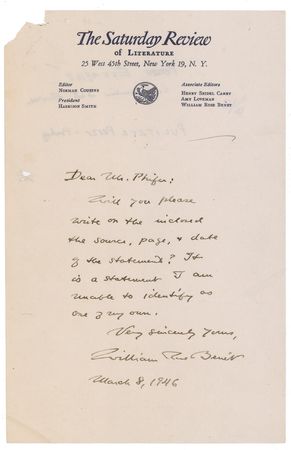 The Saturday Review
of LITERATURE
25 West 45th Street, New York 19, N. Y.
Editor
NORMAN COUSINS
President
HARRISON SMITH
Associate Editors
HENRY SEIDEL CANBY
AMY LOVEMAN
WILLIAM ROSE BENÉT
Dear Mr. Phifer:
Will you please
write on the inclosed
the source, page, & date
of the statement? It
is a statement I am
unable to identify as
one of my own.
Very sincerely yours,
William Rose Benét
March 8, 1946